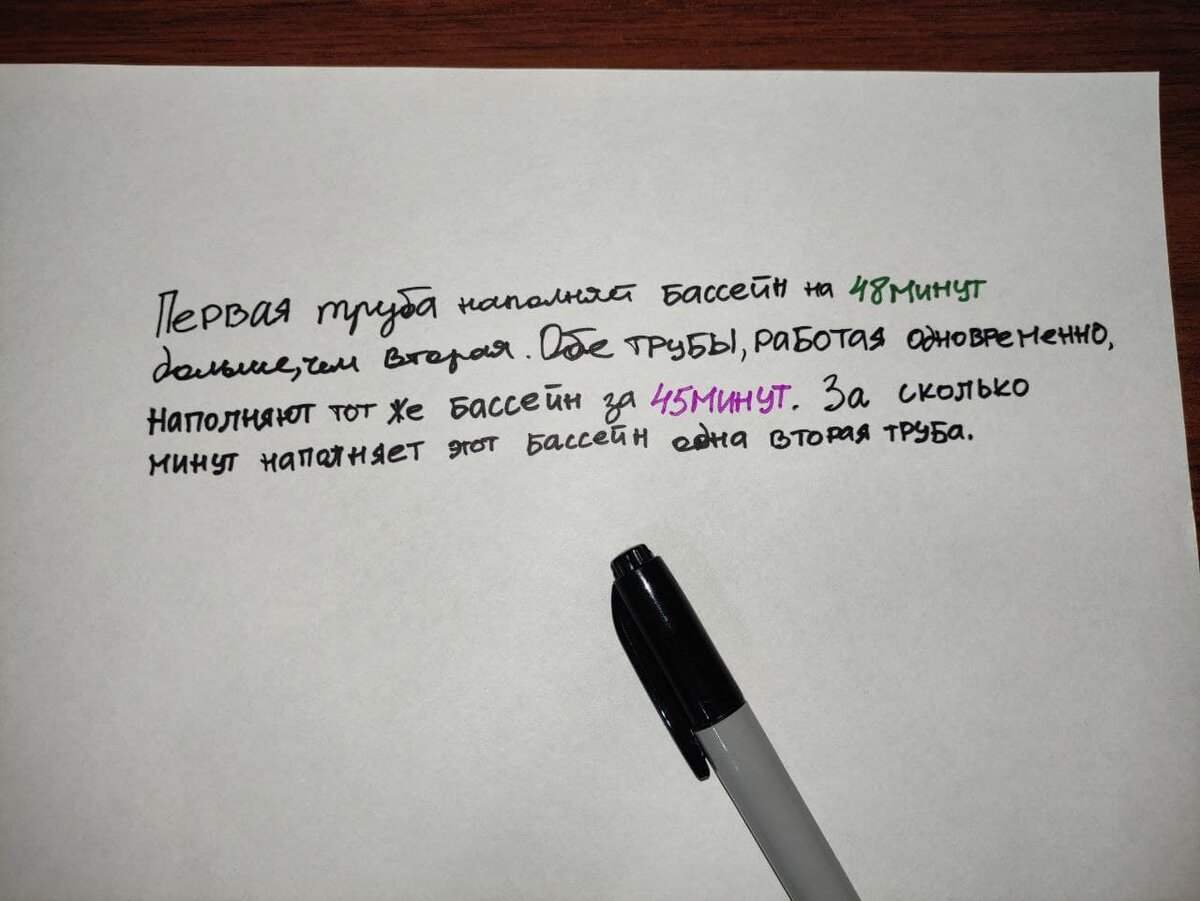 Первая труба наполняет бассейн на 48 минут
дольше, чем вторая. Обе трубы, работая одновременно,
наполняют тот же бассейн за 45 минут. За сколько
минут наполняет этот бассейн одна вторая труба.